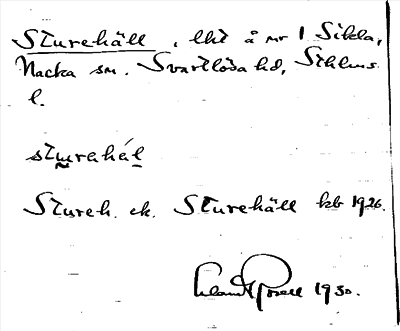 Sturehäll, lht å nr 1 Sikla,
Nacka sn. Svartlösa hd, Sthlms
l.
sturehál
Stureh. ek. Sturehäll kb 1926.
1930.